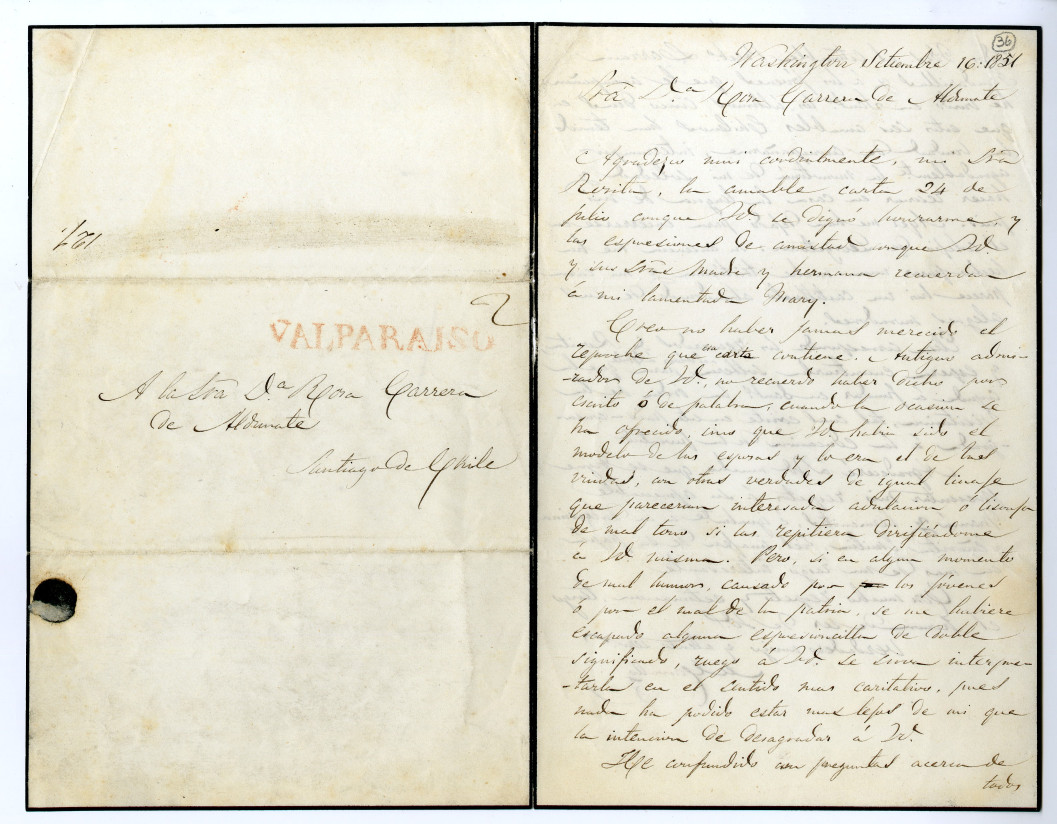 121.
2
VALPARAISO
A la Sra D.ª Rosa Carrera
de Aldunate
Santiago de Chile
36
Washington Setiembre 16: 1851
Sra D.ª Rosa Carrera de Aldunate
Agradezco mui cordialmente, mi Sra
Rosita, la amable carta 24 de
julio conque Vd. se dignó honrarme, y
las espresiones de amistad conque Vd.
y sus Sras Madre y hermana recuerdan
á mi lamentada Mary.
Creo no haber jamas merecido el
reproche que esa carta contiene. Antiguo admi-
-rador de Vd., no recuerdo haber dicho por
escrito ó de palabra, cuando la ocasion se
ha ofrecido, sino que Vd. habia sido el
modelo de las esposas y lo era el de las
viudas, con otras verdades de igual linaje
que parecerian interesada adulacion ó lisonja
de mal tono si las repitiera dirijiéndome
á Vd. misma. Pero, si en algun momento
de mal humor, causado por los jóvenes
ó por el mal de la patria, se me hubiere
escapado alguna espresioncilla de doble
significado, ruego á Vd. se sirva interpre-
-tarla en el sentido mas caritativo, pues
nada ha podido estar mas lejos de mi que
la intencion de desagradar á Vd.
He confundido con preguntas acerca de
todos